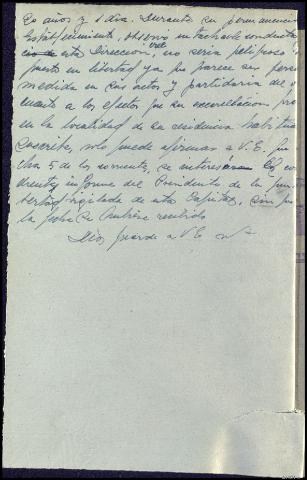 20 años y 1 día. Durante su permanencia
Establecimiento, observó intachable conducta
esta Dirección, no sería peligroso
puesto en libertad ya que parece ser pers
medida en sus actos y partidaria del
cuanto a los efectos que su excarcelación pro
en la localidad de su residencia habitual
suscribe, solo puede afirmar a V.E. que
cha 5 de los corrientes, se interesó
informe del Presidente de la Jun
bertad vigilada de esta Capital, sin que
la fecha se hubiese recibido
Dios guarde a V.E. m/a